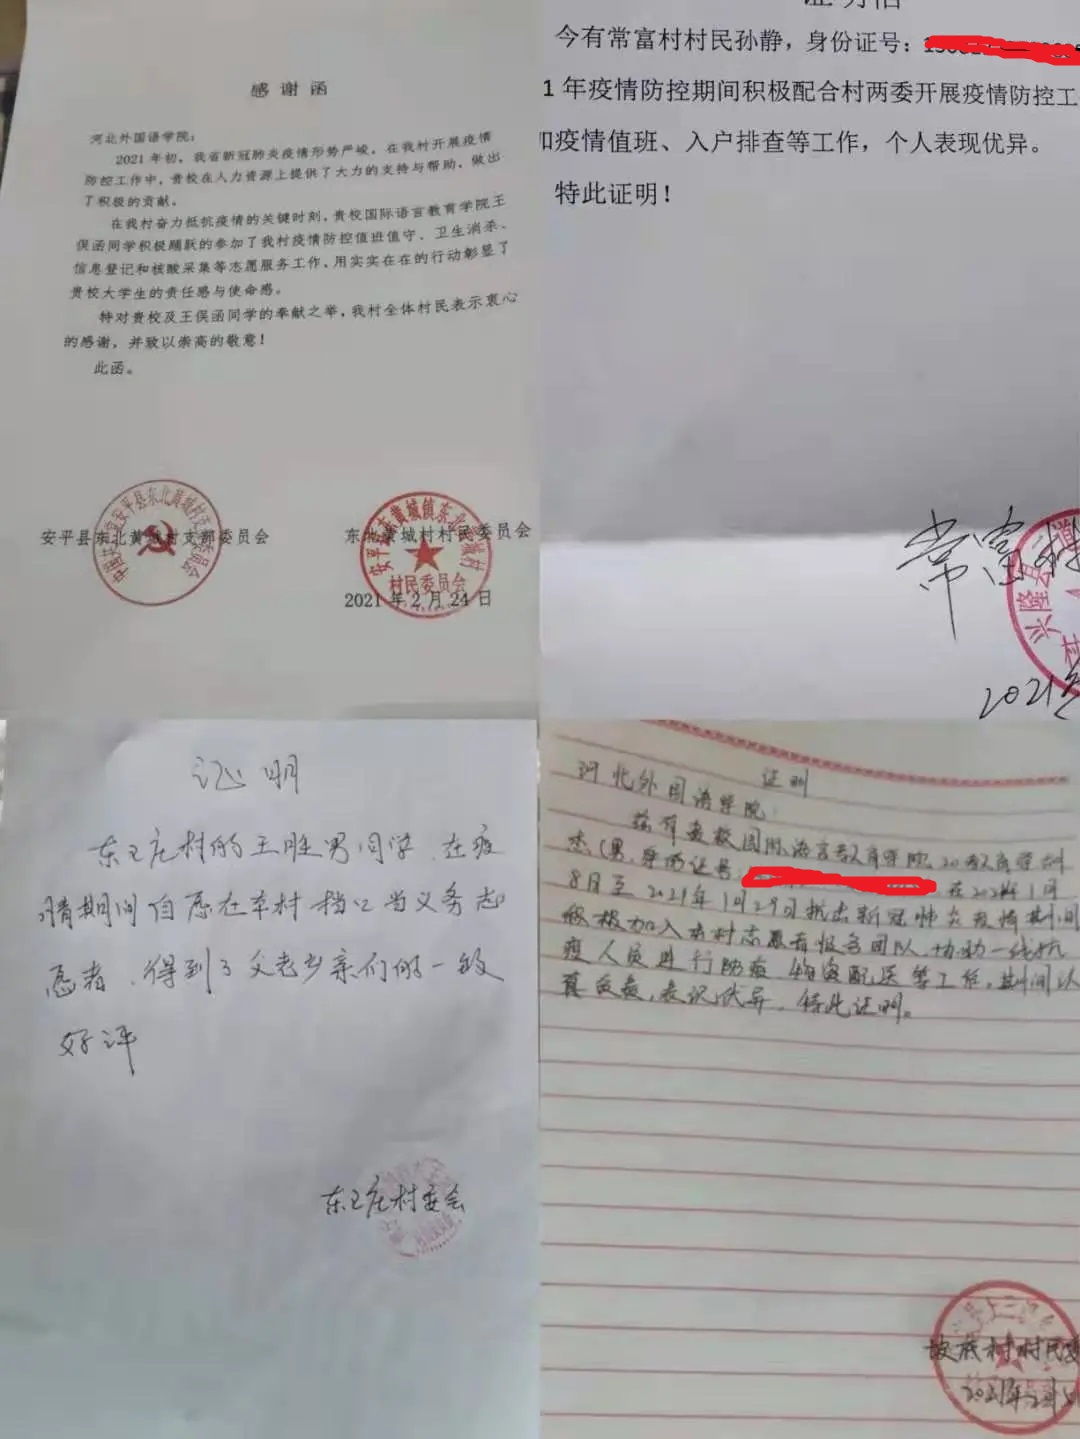 感谢函
河北外国语学院：
2021年初，我省新冠肺炎疫情形势严峻，在我村开展疫情
防控工作中，贵校在人力资源上提供了大力的支持与帮助，做出
了积极的贡献。
在我村奋力抵抗疫情的关键时刻，贵校国际语言教育学院王
俣函同学积极踊跃的参加了我村疫情防控值班值守、卫生消杀、
信息登记和核酸采集等志愿服务工作，用实实在在的行动彰显了
贵校大学生的责任感与使命感。
特对贵校及王俣函同学的奉献之举，我村全体村民表示衷心
的感谢，并致以崇高的敬意！
此函。
安平县东北黄城村支部委员会
东北黄城村村民委员会
2021年2月24日
今有常富村村民孙静，身份证号：
1年疫情防控期间积极配合村两委开展疫情防控工
加疫情值班、入户排查等工作，个人表现优异。
特此证明！
常富村
兴隆县
2021年
证明
东王庄村的王胜男同学，在疫
情期间自愿在本村档口当义务志
愿者，得到了父老乡亲们的一致
好评
东王庄村委会
证明
河北外国语学院：
兹有贵校国际语言教育学院20教育学
杰（男，身份证号：在2021年1月
8日至2021年1月29日抗击新冠肺炎疫情期间
积极加入本村志愿者服务团队，协助一线抗
疫人员进行防疫、物资配送等工作，期间认
真负责，表现优异，特此证明。
坡底村村民委
2021年2月